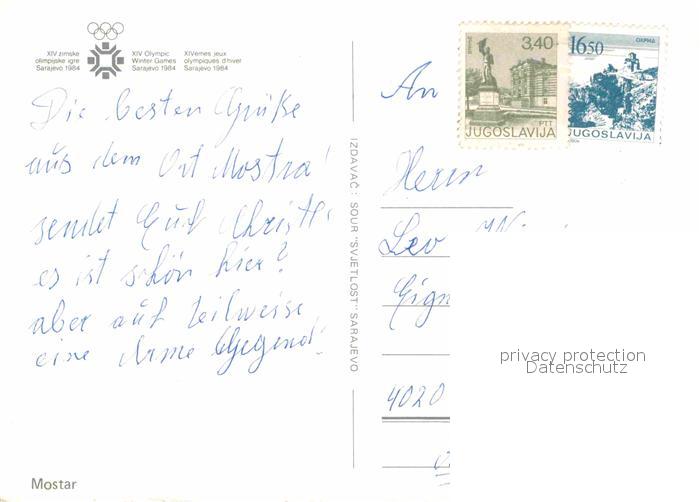 XIV zimske
olimpijske igre
Sarajevo 1984
XIV Olympic
Winter Games
Sarajevo 1984
XIVèmes jeux
olympiques d'hiver
Sarajevo 1984
3,40
PTT
JUGOSLAVIJA
16 50
ОХРИД
JUGOSLAVIJA
Die besten Grüße
aus dem Ort Mostra!
sendet Euch
es ist schön hier?
aber auch teilweise
eine Arme Gegend!
IZDAVAČ: SOUR "SVJETLOST" SARAJEVO
An
Herrn
Leo
4020
privacy protection
Datenschutz
Mostar